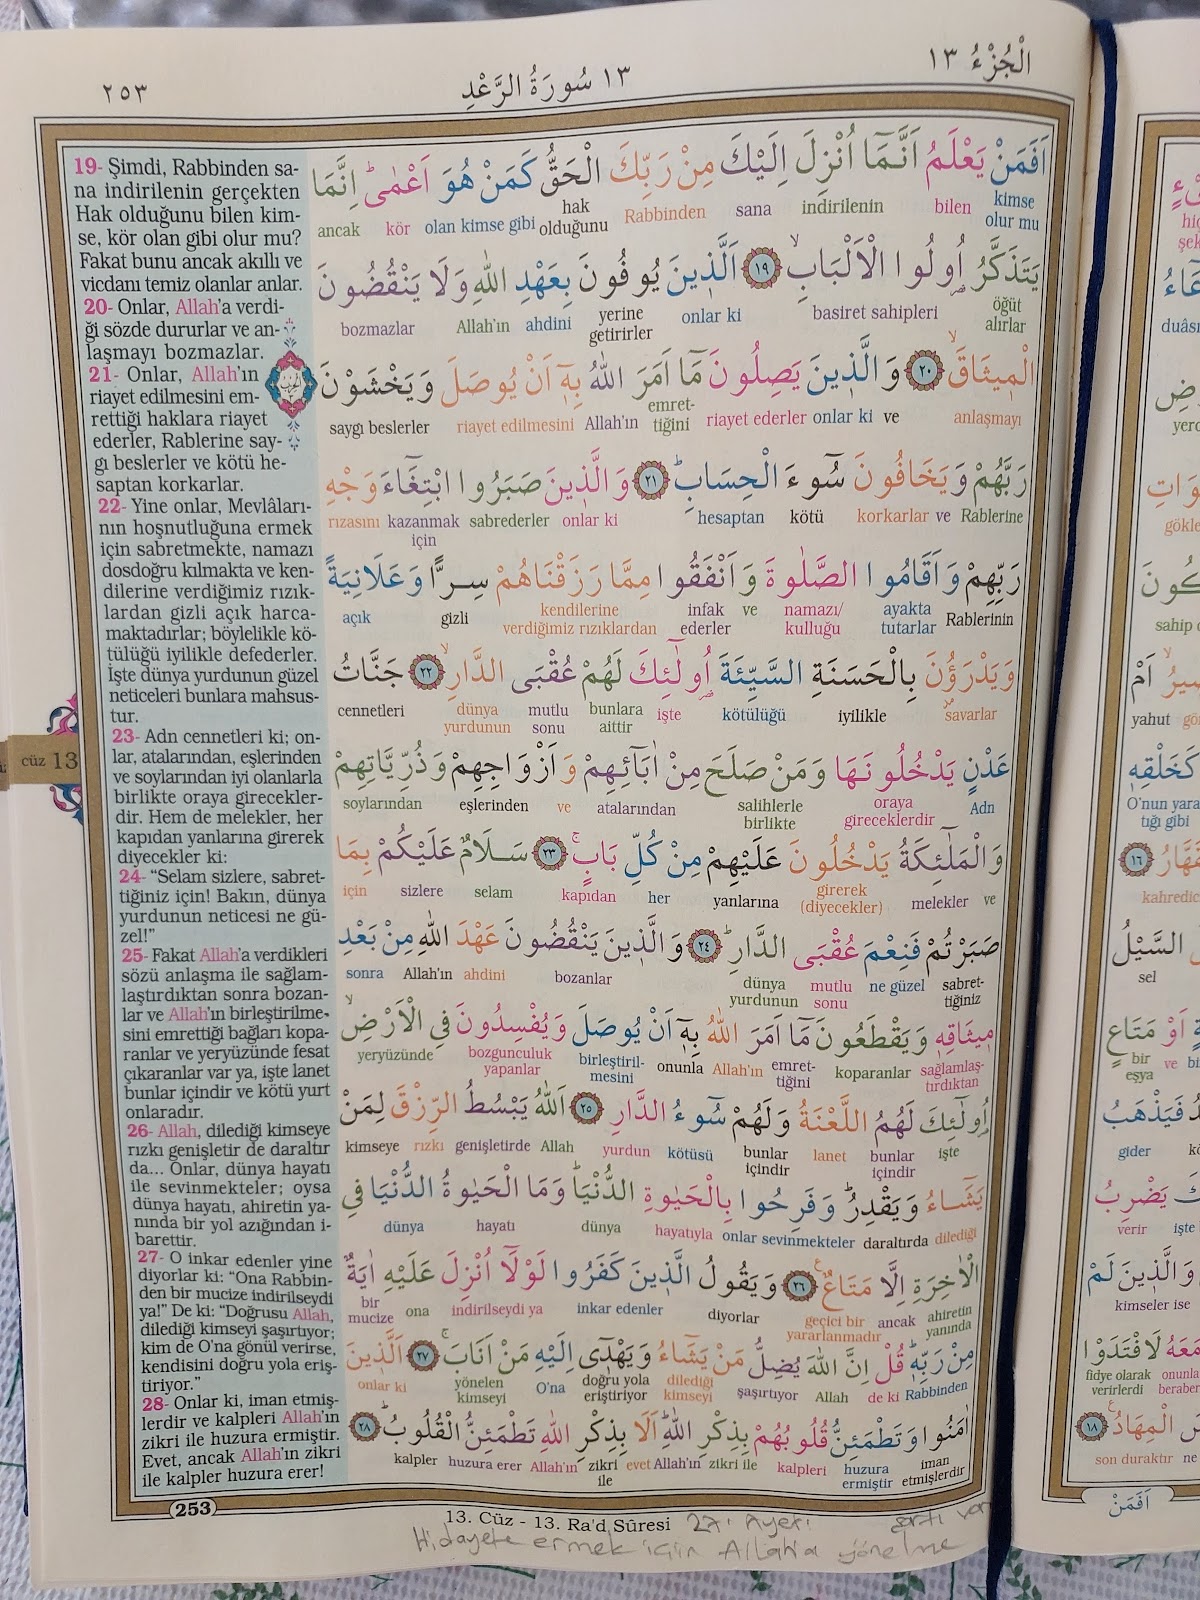 الْجُزْءُ ١٣
١٣ سُورَةُ الرَّعْدِ
٢٥٣
19- Şimdi, Rabbinden sa-
na indirilenin gerçekten
Hak olduğunu bilen kim-
se, kör olan gibi olur mu?
Fakat bunu ancak akıllı ve
vicdanı temiz olanlar anlar.
20- Onlar, Allah'a verdi-
ği sözde dururlar ve an-
laşmayı bozmazlar.
21- Onlar, Allah'ın
riayet edilmesini em-
rettiği haklara riayet
ederler, Rablerine say-
gı beslerler ve kötü he-
saptan korkarlar.
22- Yine onlar, Mevlâları-
nın hoşnutluğuna ermek
için sabretmekte, namazı
dosdoğru kılmakta ve ken-
dilerine verdiğimiz rızık-
lardan gizli açık harca-
maktadırlar; böylelikle kö-
tülüğü iyilikle defederler.
İşte dünya yurdunun güzel
neticeleri bunlara mahsus-
tur.
23- Adn cennetleri ki; on-
lar, atalarından, eşlerinden
ve soylarından iyi olanlarla
birlikte oraya girecekler-
dir. Hem de melekler, her
kapıdan yanlarına girerek
diyecekler ki:
24- “Selam sizlere, sabret-
tiğiniz için! Bakın, dünya
yurdunun neticesi ne gü-
zel!”
25- Fakat Allah'a verdikleri
sözü anlaşma ile sağlam-
laştırdıktan sonra bozan-
lar ve Allah'ın birleştirilme-
sini emrettiği bağları kopa-
ranlar ve yeryüzünde fesat
çıkaranlar var ya, işte lanet
bunlar içindir ve kötü yurt
onlaradır.
26- Allah, dilediği kimseye
rızkı genişletir de daraltır
da... Onlar, dünya hayatı
ile sevinmekteler; oysa
dünya hayatı, ahiretin ya-
nında bir yol azığından i-
barettir.
27- O inkar edenler yine
diyorlar ki: “Ona Rabbin-
den bir mucize indirilseydi
ya!” De ki: “Doğrusu Allah,
dilediği kimseyi şaşırtıyor;
kim de O'na gönül verirse,
kendisini doğru yola eriş-
tiriyor.”
28- Onlar ki, iman etmiş-
lerdir ve kalpleri Allah'ın
zikri ile huzura ermiştir.
Evet, ancak Allah'ın zikri
ile kalpler huzura erer!
cüz 13
اَفَمَنْ يَعْلَمُ اَنَّمَٓا اُنْزِلَ اِلَيْكَ مِنْ رَبِّكَ الْحَقُّ كَمَنْ هُوَ اَعْمٰىۜ اِنَّمَا
kimse olur mu bilen indirilenin sana Rabbinden hak olduğunu olan kimse gibi kör ancak
يَتَذَكَّرُ اُو۬لُوا الْاَلْبَابِۙ ١٩ اَلَّذ۪ينَ يُوفُونَ بِعَهْدِ اللّٰهِ وَلَا يَنْقُضُونَ
öğüt alırlar basiret sahipleri onlar ki yerine getirirler ahdini Allah'ın bozmazlar
الْم۪يثَاقَۙ ٢٠ وَالَّذ۪ينَ يَصِلُونَ مَٓا اَمَرَ اللّٰهُ بِه۪ٓ اَنْ يُوصَلَ وَيَخْشَوْنَ
anlaşmayı ve onlar ki riayet ederler emret-tiğini Allah'ın riayet edilmesini saygı beslerler
رَبَّهُمْ وَيَخَافُونَ سُٓوءَ الْحِسَابِۜ ٢١ وَالَّذ۪ينَ صَبَرُوا ابْتِغَٓاءَ وَجْهِ
Rablerine ve korkarlar kötü hesaptan onlar ki sabrederler kazanmak için rızasını
رَبِّهِمْ وَاَقَامُوا الصَّلٰوةَ وَاَنْفَقُوا مِمَّا رَزَقْنَاهُمْ سِرًّا وَعَلَانِيَةً
Rablerinin ayakta tutarlar namazı/kulluğu ve infak ederler kendilerine verdiğimiz rızıklardan gizli açık
وَيَدْرَؤُ۫نَ بِالْحَسَنَةِ السَّيِّئَةَ اُو۬لٰٓئِكَ لَهُمْ عُقْبَى الدَّارِۙ ٢٢ جَنَّاتُ
savarlar iyilikle kötülüğü işte bunlara aittir mutlu sonu dünya yurdunun cennetleri
عَدْنٍ يَدْخُلُونَهَا وَمَنْ صَلَحَ مِنْ اٰبَٓائِهِمْ وَاَزْوَاجِهِمْ وَذُرِّيَّاتِهِمْ
Adn oraya gireceklerdir salihlerle birlikte atalarından ve eşlerinden soylarından
وَالْمَلٰٓئِكَةُ يَدْخُلُونَ عَلَيْهِمْ مِنْ كُلِّ بَابٍۚ ٢٣ سَلَامٌ عَلَيْكُمْ بِمَا
ve melekler girerek (diyecekler) yanlarına her kapıdan selam sizlere için
صَبَرْتُمْ فَنِعْمَ عُقْبَى الدَّارِۜ ٢٤ وَالَّذ۪ينَ يَنْقُضُونَ عَهْدَ اللّٰهِ مِنْ بَعْدِ
sabret-tiğiniz ne güzel mutlu sonu dünya yurdunun bozanlar ahdini Allah'ın sonra
م۪يثَاقِه۪ وَيَقْطَعُونَ مَٓا اَمَرَ اللّٰهُ بِه۪ٓ اَنْ يُوصَلَ وَيُفْسِدُونَ فِي الْاَرْضِۙ
sağlamlaş-tırdıktan koparanlar emret-tiğini Allah'ın onunla birleştiril-mesini bozgunculuk yapanlar yeryüzünde
اُو۬لٰٓئِكَ لَهُمُ اللَّعْنَةُ وَلَهُمْ سُٓوءُ الدَّارِ ٢٥ اَللّٰهُ يَبْسُطُ الرِّزْقَ لِمَنْ
işte bunlar içindir lanet bunlar içindir kötüsü yurdun Allah genişletirde rızkı kimseye
يَشَٓاءُ وَيَقْدِرُۜ وَفَرِحُوا بِالْحَيٰوةِ الدُّنْيَاۜ وَمَا الْحَيٰوةُ الدُّنْيَا فِي
dilediği daraltırda onlar sevinmekteler hayatıyla dünya hayatı dünya
الْاٰخِرَةِ اِلَّا مَتَاعٌ۟ ٢٦ وَيَقُولُ الَّذ۪ينَ كَفَرُوا لَوْلَٓا اُنْزِلَ عَلَيْهِ اٰيَةٌ
ahiretin yanında ancak geçici bir yararlanmadır diyorlar inkar edenler indirilseydi ya ona bir mucize
مِنْ رَبِّه۪ۜ قُلْ اِنَّ اللّٰهَ يُضِلُّ مَنْ يَشَٓاءُ وَيَهْد۪ٓي اِلَيْهِ مَنْ اَنَابَۚ ٢٧ اَلَّذ۪ينَ
Rabbinden de ki Allah şaşırtıyor dilediği kimseyi doğru yola eriştiriyor O'na yönelen kimseyi onlar ki
اٰمَنُوا وَتَطْمَئِنُّ قُلُوبُهُمْ بِذِكْرِ اللّٰهِۜ اَلَا بِذِكْرِ اللّٰهِ تَطْمَئِنُّ الْقُلُوبُۜ ٢٨
iman etmişlerdir huzura ermiştir kalpleri zikri ile Allah'ın evet zikri ile Allah'ın huzura erer kalpler
253
13. Cüz - 13. Ra'd Sûresi 27. Ayeti şartı var
Hidayete ermek için Allah'a yönelme
duâsı
gökle
yahut
O'nun yara
tığı gibi
١٦
kahredici
السَّيْلُ
sel
اَوْ مَتَاعٍ
bir eşya ve
فَيَذْهَبُ
gider
يَضْرِبُ
verir işte
وَالَّذ۪ينَ لَمْ
kimseler ise
لَافْتَدَوْا
fidye olarak verirlerdi
الْمِهَادُ۟ ١٨
son duraktır ne
اَفَمَنْ